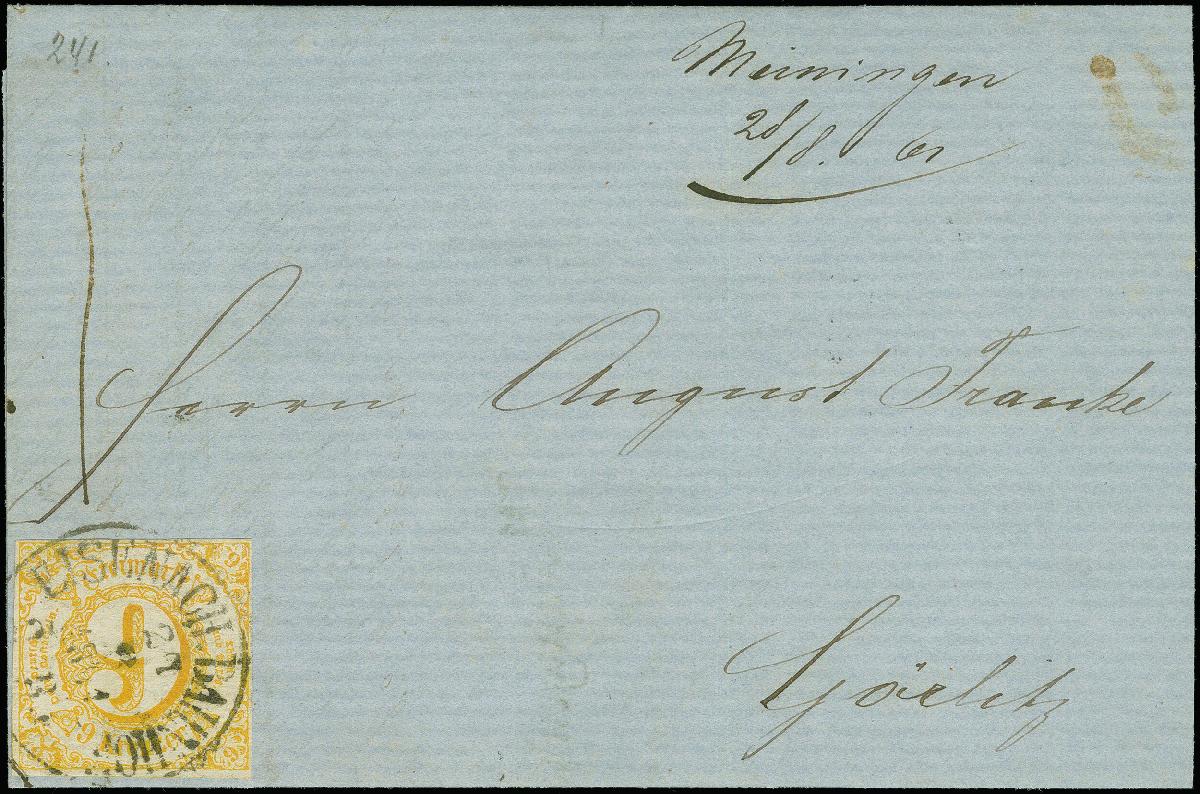 241.
Meiningen
28/8. 61
Herrn August Franke
Görlitz
EISENACH BAHNHOF
9